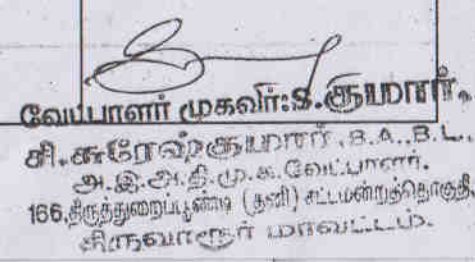 வேட்பாளர் முகவர்:S.குமார்.
சி.சுரேஷ்குமார்.B.A.,B.L.
அ.இ.அ.தி.மு.க.வேட்பாளர்.
166,திருத்துறைப்பூண்டி (தனி) சட்டமன்றத்தொகுதி,
திருவாரூர் மாவட்டம்.